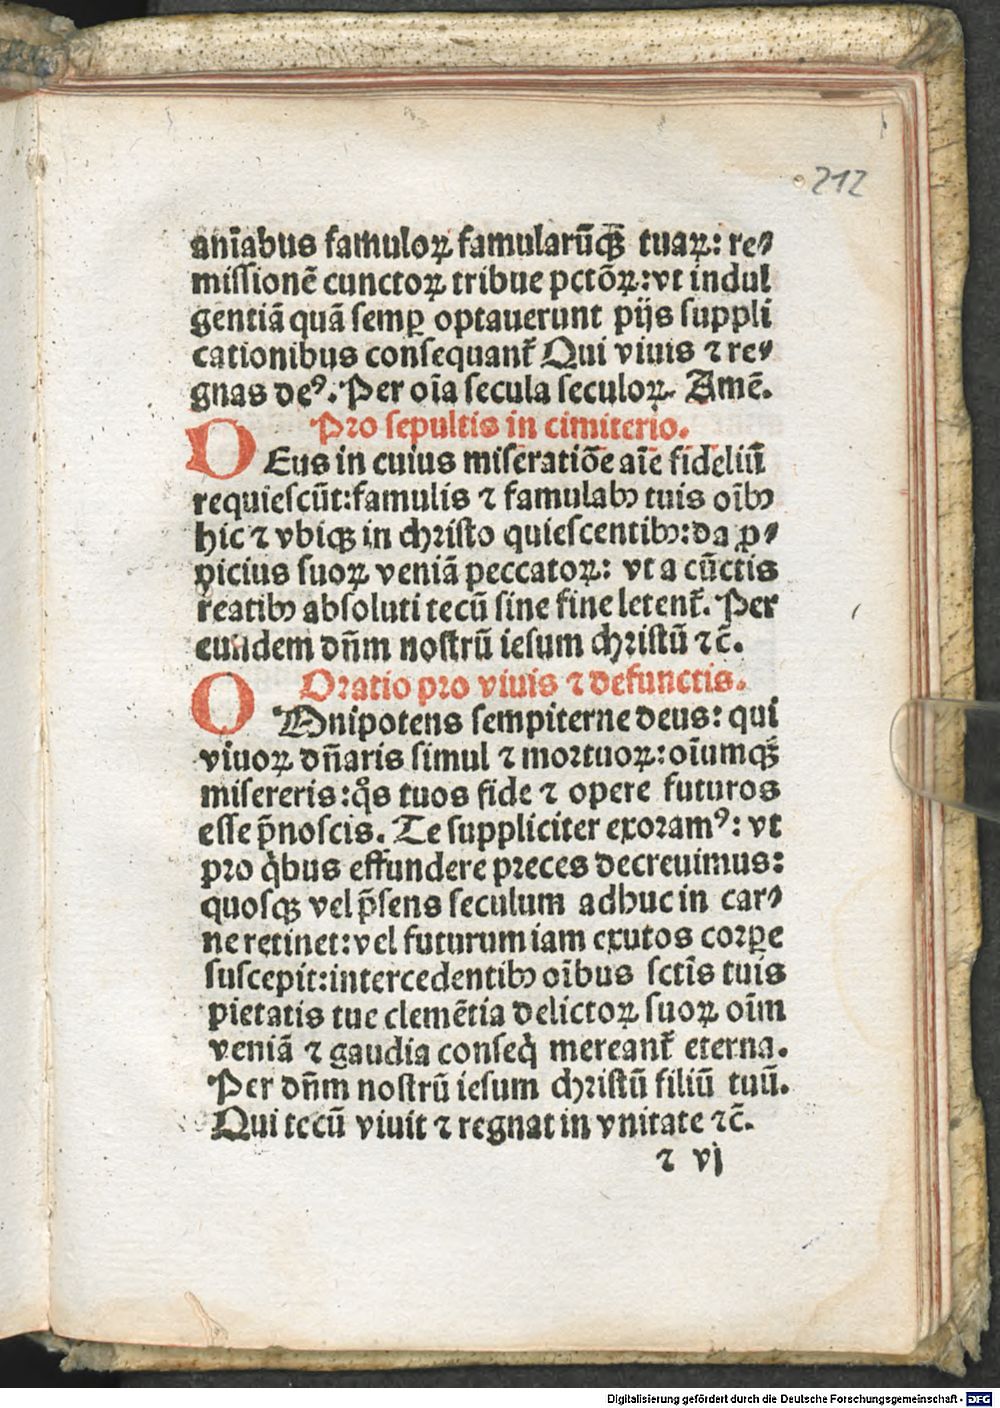 212
anīabus famuloꝝ famularūqꝫ tuaꝝ: re⸗
missionē cunctoꝝ tribue pctōꝝ: vt indul
gentiā quā semꝑ optauerunt pijs suppli
cationibus consequanť Qui viuis ⁊ re⸗
gnas deꝰ. Per oīa secula seculoꝝ. Amē.
Pro sepultis in cimiterio.
DEus in cuius miseratiōe aīe fideliū
requiescūt: famulis ⁊ famulabꝫ tuis oībꝫ
hic ⁊ vbiqꝫ in christo quiescentibꝫ: da ꝓ⸗
picius suoꝝ veniā peccatoꝝ: vt a cūctis
reatibꝫ absoluti tecū sine fine letenť. Per
eundem dn̄m nostrū iesum christū ⁊c̄.
Oratio pro viuis ⁊ defunctis.
OMnipotens sempiterne deus: qui
viuoꝝ dn̄aris simul ⁊ mortuoꝝ: oīumqꝫ
misereris: qͦs tuos fide ⁊ opere futuros
esse p̄noscis. Te suppliciter exoramꝰ: vt
pro qͥbus effundere preces decreuimus:
quosqꝫ vel p̄sens seculum adhuc in car⸗
ne retinet: vel futurum iam exutos corꝑe
suscepit: intercedentibꝫ oībus sctīs tuis
pietatis tue clemētia delictoꝝ suoꝝ oīm
veniā ⁊ gaudia conseqͥ mereanť eterna.
Per dn̄m nostrū iesum christū filiū tuū.
Qui tecū viuit ⁊ regnat in vnitate ⁊c̄.
⁊ vj
Digitalisierung gefördert durch die Deutsche Forschungsgemeinschaft - DFG